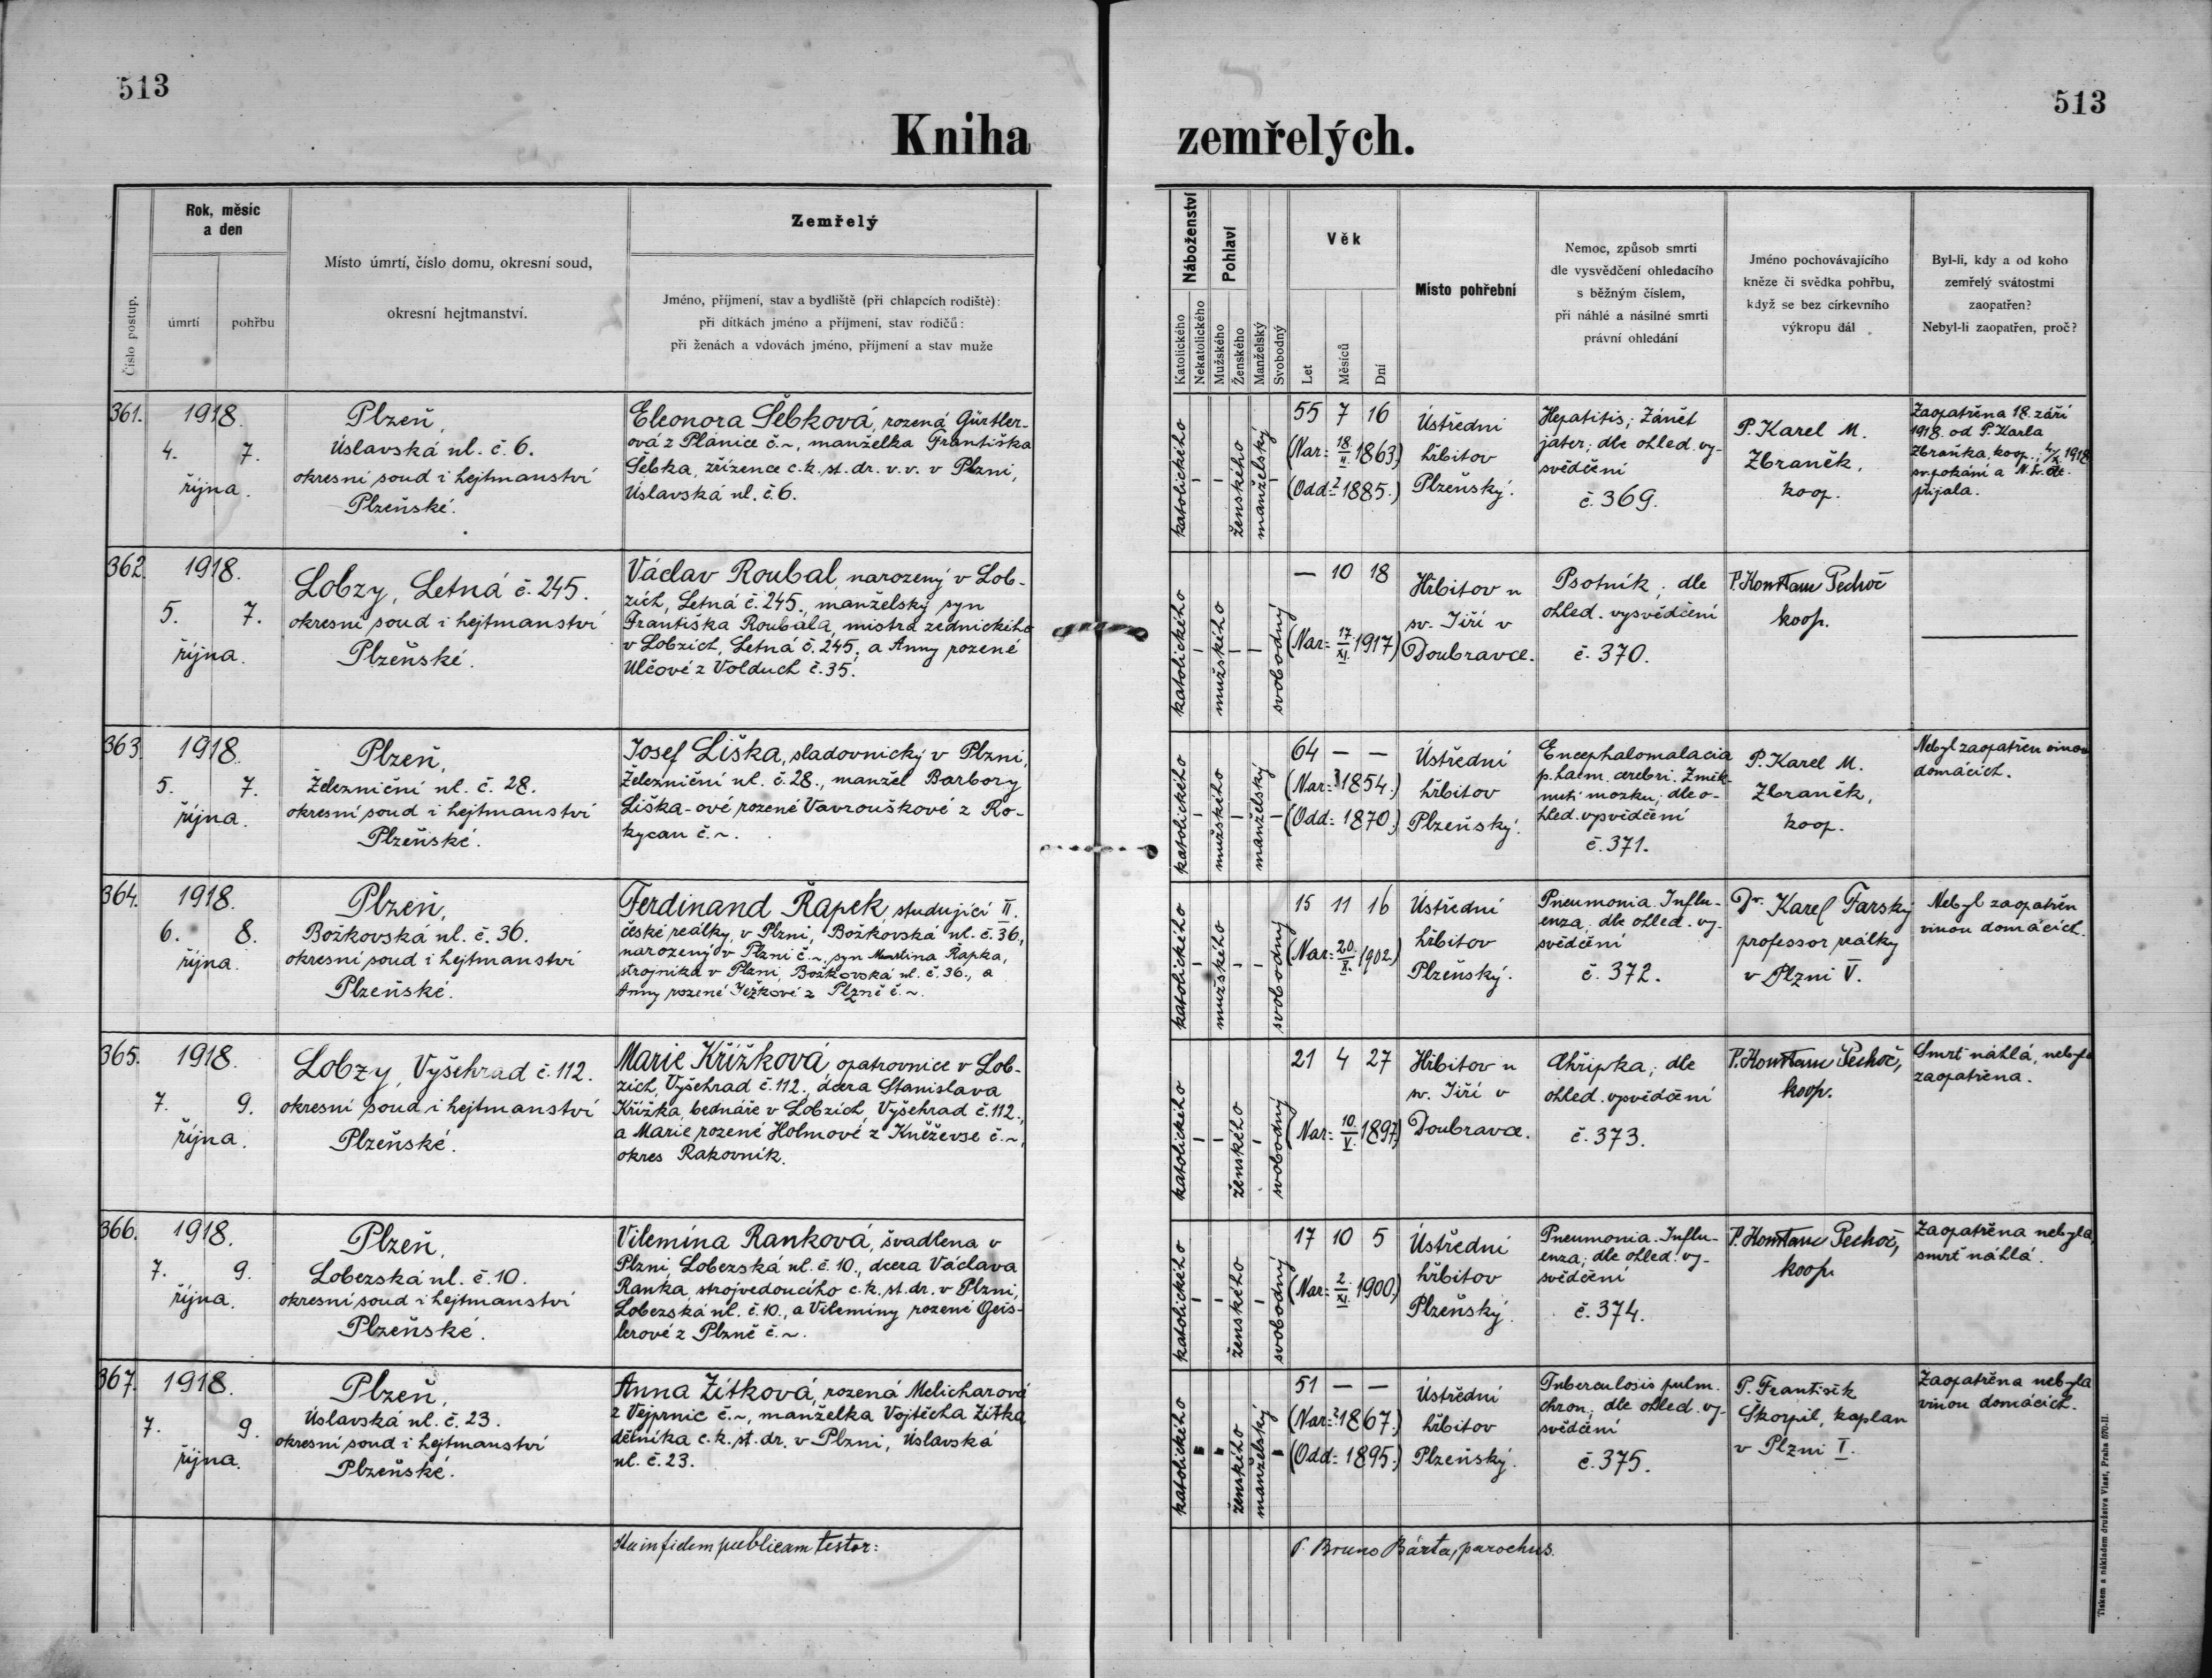 513
513
Kniha zemřelých.
Číslo postup.
Rok, měsíc
a den
úmrtí
pohřbu
Místo úmrtí, číslo domu, okresní soud,
okresní hejtmanství.
Zemřelý
Jméno, příjmení, stav a bydliště (při chlapcích rodiště):
při dítkách jméno a příjmení, stav rodičů:
při ženách a vdovách jméno, příjmení a stav muže
Náboženství
Katolického
Nekatolického
Pohlaví
Mužského
Ženského
Manželský
Svobodný
Věk
Let
Měsíců
Dní
Místo pohřební
Nemoc, způsob smrti
dle vysvědčení ohledacího
s běžným číslem,
při náhlé a násilné smrti
právní ohledání
Jméno pochovávajícího
kněze či svědka pohřbu,
když se bez církevního
výkropu dál
Byl-li, kdy a od koho
zemřelý svátostmi
zaopatřen?
Nebyl-li zaopatřen, proč?
361.
1918.
4. 7.
října.
Plzeň,
Úslavská ul. č. 6.
okresní soud i hejtmanství
Plzeňské.
Eleonora Šebková, rozená Gürtler-
ová z Plánice č.~, manželka Františka
Šebka, zřízence c.k. st. dr. v. v. v Plzni,
Úslavská ul. č. 6.
katolického
-
-
ženského
manželský
-
55 7 16
(Nar: 18. 1863)
(Odd: 1885.)
Ústřední
hřbitov
Plzeňský.
Hepatitis; Zánět
jater; dle ohled. vy-
svědčení
č. 369.
P. Karel M.
Zbraněk,
koop.
Zaopatřena 18. září
1918. od P. Karla
Zbraňka, koop.; 1918
sv. pokání a
přijala.
362.
1918.
5. 7.
října.
Lobzy, Letná č. 245.
okresní soud i hejtmanství
Plzeňské.
Václav Roubal, narozený v Lob-
zích, Letná č. 245., manželský syn
Františka Roubala, mistra zednického
v Lobzích, Letná č. 245, a Anny rozené
Ulčové z Volduch č. 35.
katolického
-
mužského
-
-
svobodný
— 10 18
(Nar: 17/XI. 1917)
Hřbitov u
sv. Jiří v
Doubravce.
Psotník; dle
ohled. vysvědčení
č. 370.
P. Konstanc Pechoč
koop.
—
363.
1918.
5. 7.
října.
Plzeň,
Železniční ul. č. 28.
okresní soud i hejtmanství
Plzeňské.
Josef Liška, sladovnický v Plzni,
Železniční ul. č. 28., manžel Barbory
Liška-ové rozené Vavrouškové z Ro-
kycan č. ~.
katolického
-
mužského
-
manželský
-
64 — —
(Nar: ? 1854.)
(Odd: 1870.)
Ústřední
hřbitov
Plzeňský.
Encephalomalacia
p. haem. cerebri. Změk-
nutí mozku; dle o-
hled. vysvědčení
č. 371.
P. Karel M.
Zbraněk,
koop.
Nebyl zaopatřen vinou
domácích.
364.
1918.
6. 8.
října.
Plzeň,
Božkovská ul. č. 36.
okresní soud i hejtmanství
Plzeňské.
Ferdinand Řapek, studující II.
české reálky, v Plzni, Božkovská ul. č. 36,
narozený v Plzni č. ~, syn Martina Řapka,
strojníka v Plzni, Božkovská ul. č. 36., a
Anny rozené Ježkové z Plzně č. ~.
katolického
-
mužského
-
-
svobodný
15 11 16
(Nar: 20/X. 1902.)
Ústřední
hřbitov
Plzeňský.
Pneumonia. Influ-
enza; dle ohled. vy-
svědčení
č. 372.
Dr. Karel Farský
professor reálky
v Plzni V.
Nebyl zaopatřen
vinou domácích.
365.
1918.
7. 9.
října.
Lobzy, Vyšehrad č. 112.
okresní soud i hejtmanství
Plzeňské.
Marie Křížková, opatrovnice v Lob-
zích, Vyšehrad č. 112., dcera Stanislava
Křížka, bednáře v Lobzích, Vyšehrad č. 112.,
a Marie rozené Holmové z Kněževse č. ~,
okres Rakovník.
katolického
-
-
ženského
-
svobodný
21 4 27
(Nar: 10/V. 1897)
Hřbitov u
sv. Jiří v
Doubravce.
Chřipka; dle
ohled. vysvědčení
č. 373.
P. Konstanc Pechoč,
koop.
Smrť náhlá, nebyla
zaopatřena.
366.
1918.
7. 9.
října.
Plzeň,
Lobezská ul. č. 10.
okresní soud i hejtmanství
Plzeňské.
Vilemína Ranková, švadlena v
Plzni Lobezská ul. č. 10., dcera Václava
Ranka, strojvedoucího c.k. st. dr. v Plzni,
Lobezská ul. č. 10., a Vilemíny rozené Geis-
lerové z Plzně č. ~.
katolického
-
-
ženského
-
svobodný
17 10 5
(Nar: 2/XI. 1900)
Ústřední
hřbitov
Plzeňský.
Pneumonia. Influ-
enza; dle ohled. vy-
svědčení
č. 374.
P. Konstanc Pechoč,
koop.
Zaopatřena nebyla,
smrť náhlá.
367.
1918.
7. 9.
října.
Plzeň,
Úslavská ul. č. 23.
okresní soud i hejtmanství
Plzeňské.
Anna Žitková, rozená Melicharová
z Vejprnic č. ~, manželka Vojtěcha Žitka
dělníka c.k. st. dr. v Plzni, Úslavská
ul. č. 23.
katolického
-
-
ženského
manželský
-
51 — —
(Nar: ? 1867.)
(Odd: 1895.)
Ústřední
hřbitov
Plzeňský.
Tuberculosis pulm.
chron.; dle ohled. vy-
svědčení
č. 375.
P. František
Škorpil, kaplan
v Plzni I.
Zaopatřena nebyla
vinou domácích.
Ita in fidem publicam testor:
P. Bruno Bárta, parochus.
Tiskem a nákladem družstva Vlasť, Praha 570-II.